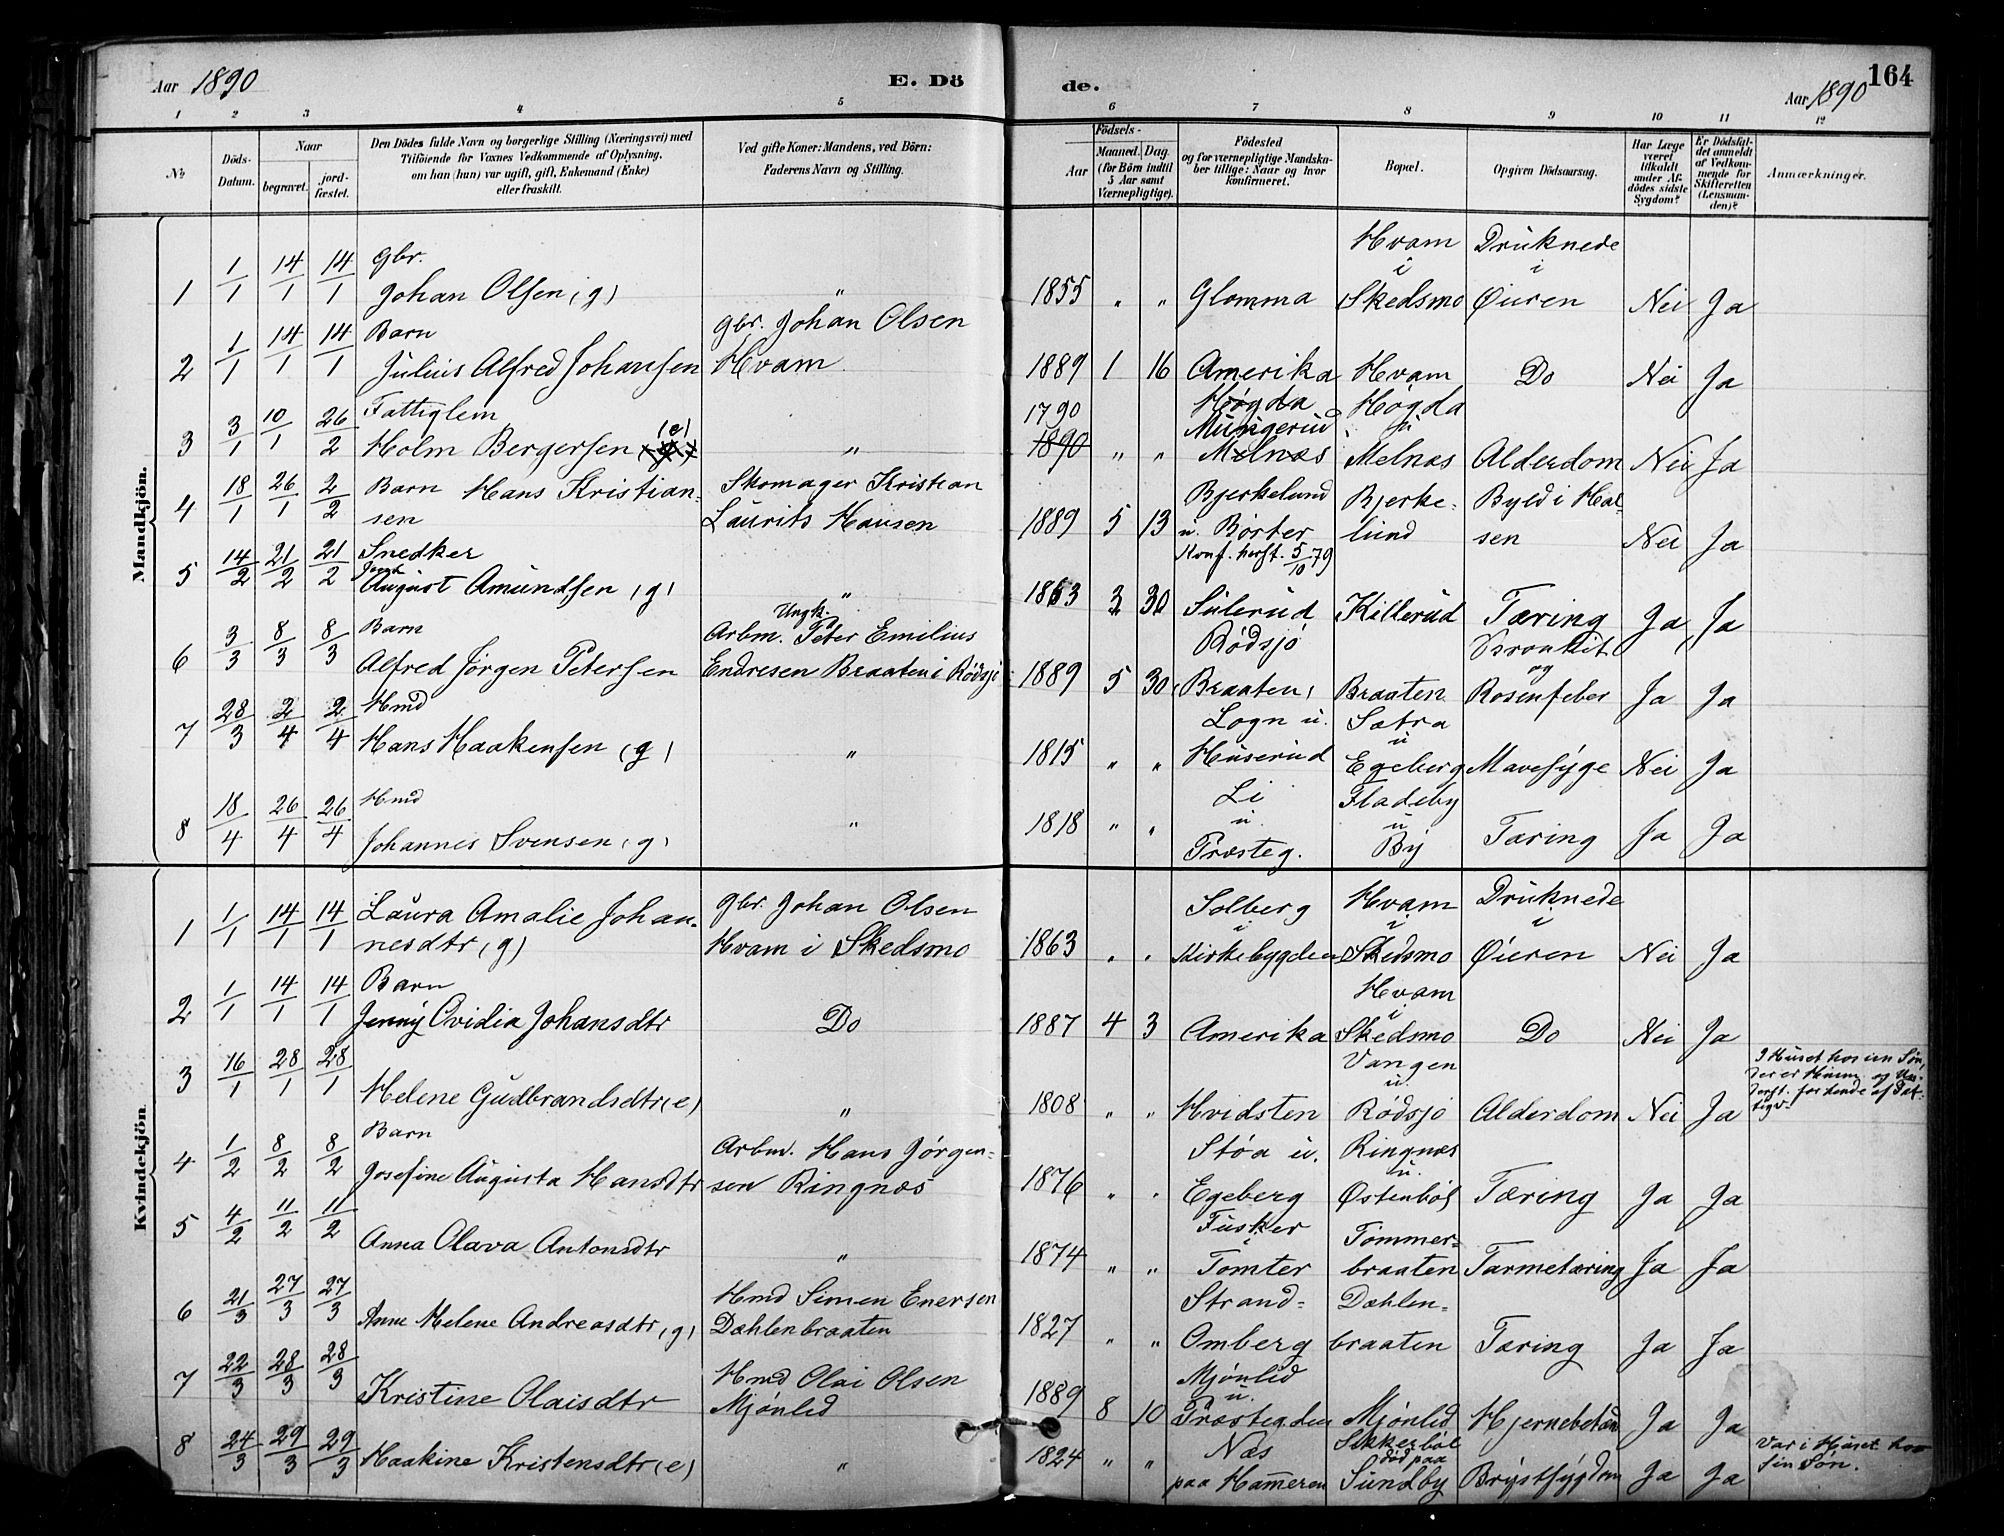 Aar 1890
E. Dö
de.
164
Aar 1890
1 2 3 4 5 6 7 8 9 10 11 12
No
Döds-Datum.
Naar
begravet.
jord-fæstet.
Den Dödes fulde Navn og borgerlige Stilling (Næringsvei) med
Tilföiende for Voxnes Vedkommende af Oplysning,
om han (hun) var ugift, gift, Enkemand (Enke)
eller fraskilt.
Ved gifte Koner: Mandens, ved Börn:
Faderens Navn og Stilling.
Födsels-
Aar
Maaned. Dag.
(for Börn indtil
5 Aar samt
Værnepligtige).
Födested
og for værnepligtige Mandska-
ber tillige: Naar og hvor
konfirmeret.
Bopæl.
Opgiven Dödsaarsag.
Har Læge
været
tilkaldt
under Af-
dödes sidste
Sygdom?
Er Dödsfal-
det anmeldt
af Vedkom-
mende for
Skifteretten
(Lensman-
den)?
Anmærkninger.
Mandkjön.
1 1/1 14/1 14/1 Gbr.
Johan Olsen (g) " 1855 " " Glomma Hvam i Skedsmo Druknede i Øieren Nei Ja
2 1/1 14/1 14/1 Barn
Julius Alfred Johansen gbr. Johan Olsen
Hvam 1889 1 16 Amerika Hvam Do Nei Ja
3 3/1 10/1 26/2 Fattiglem
Holm Bergersen (e) " 1790
1890 " " Høgda
Mungerud
Melnæs Høgda
u
Melnæs Alderdom Nei Ja
4 18/1 26/1 2/2 Barn Hans Kristian-
sen Skomager Kristian
Laurits Hansen 1889 5 13 Bjerkelund
u. Børter Bjerke-
lund Byld i Hal-
sen Nei Ja
5 14/2 21/2 21/2 Snedker
August Amundsen (g) " 1863 3 30 Konf. herst. 5/10 79
Sulerud Killerud Tæring Ja Ja
6 3/3 8/3 8/3 Barn
Alfred Jørgen Petersen Ungk.
Arbm. Peter Emilius
Endresen Braaten i Rødsjø 1889 5 30 Rødsjø
Braaten Braaten og
Rosenfeber Ja Ja
7 28/3 2/4 2/4 Hmd
Hans Haakensen (g) " 1815 " " Logn u.
Huserud Sætra
u
Egeberg Mavesyge Nei Ja
8 18/4 26/4 26/4 Hmd
Johannes Svensen (g) " 1818 " " Li
u.
Præsteg. Fladeby
u
By Tæring Ja Ja
Kvindekjön
1 1/1 14/1 14/1 Laura Amalie Johan-
nesdtr (g) gbr. Johan Olsen
Hvam i Skedsmo 1863 " " Solberg
i
Kirkebygden Hvam
i
Skedsmo Druknede
i
Øieren Nei Ja
2 1/1 14/1 14/1 Barn
Jenny Ovidia Johansdtr Do 1887 4 3 Amerika Hvam
i
Skedsmo Do Nei Ja
3 16/1 28/1 28/1
Helene Gudbrandsdtr (e) " 1808 " " Hvidsten Vangen
u.
Rødsjø Alderdom Nei Ja I Huset hos en Søn,
der er Husm. og Un-
derst. for hende af Fat-
tigv.
4 1/2 8/2 8/2 Barn
Josefine Augusta Hansdtr Arbm. Hans Jørgen-
sen Ringnæs 1876 " " Støa u.
Egeberg Ringnæs
u.
Østenbøl Tæring Ja Ja
5 4/2 11/2 11/2
Anna Olava Antonsdtr " 1874 " " Fusker
i
Tomter Tømmer-
braaten Tarmetæring Ja Ja
6 21/3 27/3 27/3
Anne Helene Andreasdtr (g) Hmd Simen Enersen
Dæhlenbraaten 1827 " " Strand-
Omberg Dæhlen-
braaten Tæring Ja Ja
7 22/3 28/3 28/3
Kristine Olaisdtr Hmd Olai Olsen
Mjønlid 1889 8 10 Mjønlid
u.
Præstegden Mjønlid Hjernebetæn Ja Ja
8 24/3 29/3 29/3 Haakine Kristensdtr (e) " 1824 " " Næs
paa Hameren Sikkerbøl
død paa
Sundby Brystsygdom Ja Ja Var i Huset hos
sin Søn.